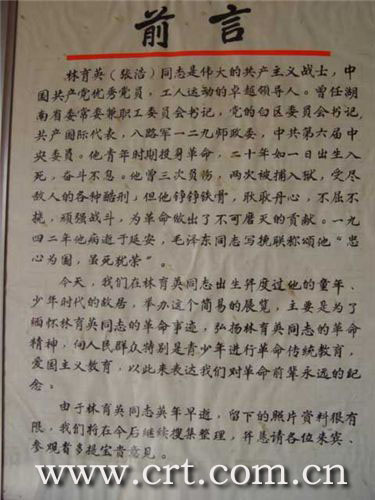 前言
林育英（张浩）同志是伟大的共产主义战士，中
国共产党优秀党员，工人运动的卓越领导人。曾任湖
南省委常委兼职工委员会书记，党的白区委员会书记，
共产国际代表，八路军一二九师政委，中共第六届中
央委员。他青年时期投身革命，二十年如一日出生入
死，奋斗不息。他曾三次负伤，两次被捕入狱，受尽
敌人的各种酷刑，但他铮铮铁骨，耿耿丹心，不屈不
挠，顽强战斗，为革命做出了不可磨灭的贡献。一九
四二年他病逝于延安，毛泽东同志写挽联称颂他“忠
心为国，虽死犹荣”。
今天，我们在林育英同志出生并度过他的童年、
少年时代的故居，举办这个简易的展览，主要是为了
缅怀林育英同志的革命事迹，弘扬林育英同志的革命
精神，向人民群众特别是青少年进行革命传统教育，
爱国主义教育，以此来表达我们对革命前辈永远的纪
念。
由于林育英同志英年早逝，留下的照片资料很有
限，我们将在今后继续搜集整理，并恳请各位来宾、
参观者多提宝贵意见。
www.crt.com.cn